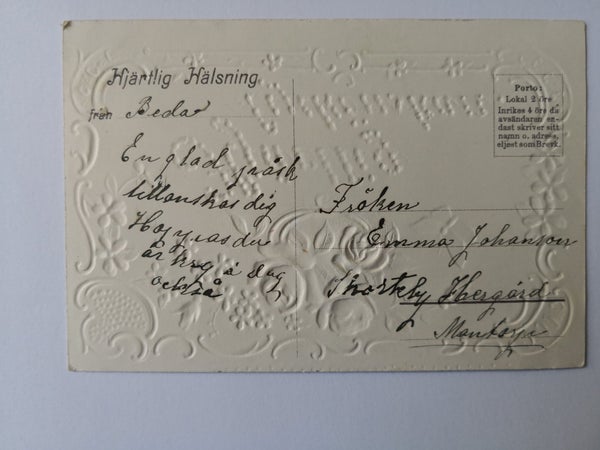 Hjärtlig Hälsning
från Beda
En glad påsk
tillönskas dig
Hoppas du
är kry i Dag
också
Porto:
Lokal 2 öre
Inrikes 4 öre då
avsändaren en-
dast skriver sitt
namn o. adress,
eljest som Brevk.
Fröken
Emma Johanson
Herrgård